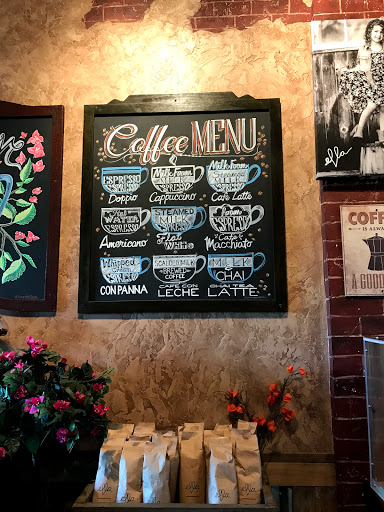 Coffee MENU
ESPRESSO
Doppio
Milk Foam
MILK
ESPRESSO
Cappuccino
Milk Foam
Steamed
MILK
ESPRESSO
Cafe Latte
Hot
WATER
ESPRESSO
Americano
STEAMED
MILK
ESPRESSO
Flat White
Foam
ESPRESSO
Cafe Macchiato
Whipped
Cream
ESPRESSO
CON PANNA
SCALDED MILK
BREWED
COFFEE
CAFE CON
LECHE
MILK
CHAI
CHAI TEA
LATTE
ella
COFF
IS ALWA
A GOOD
ella
ella
ella